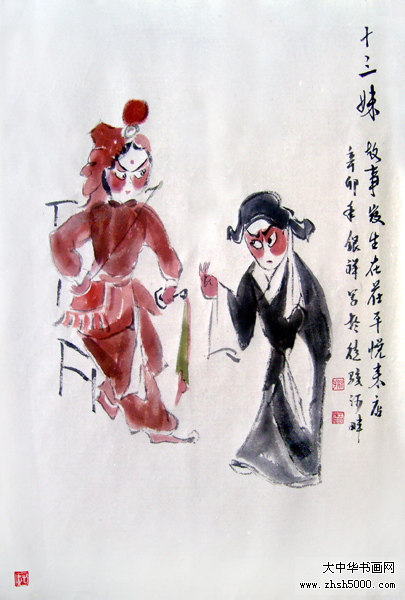 十三妹
故事发生在茌平悦来店
辛卯年银祥写于楚
河畔
大中华书画网
www.zhsh5000.com